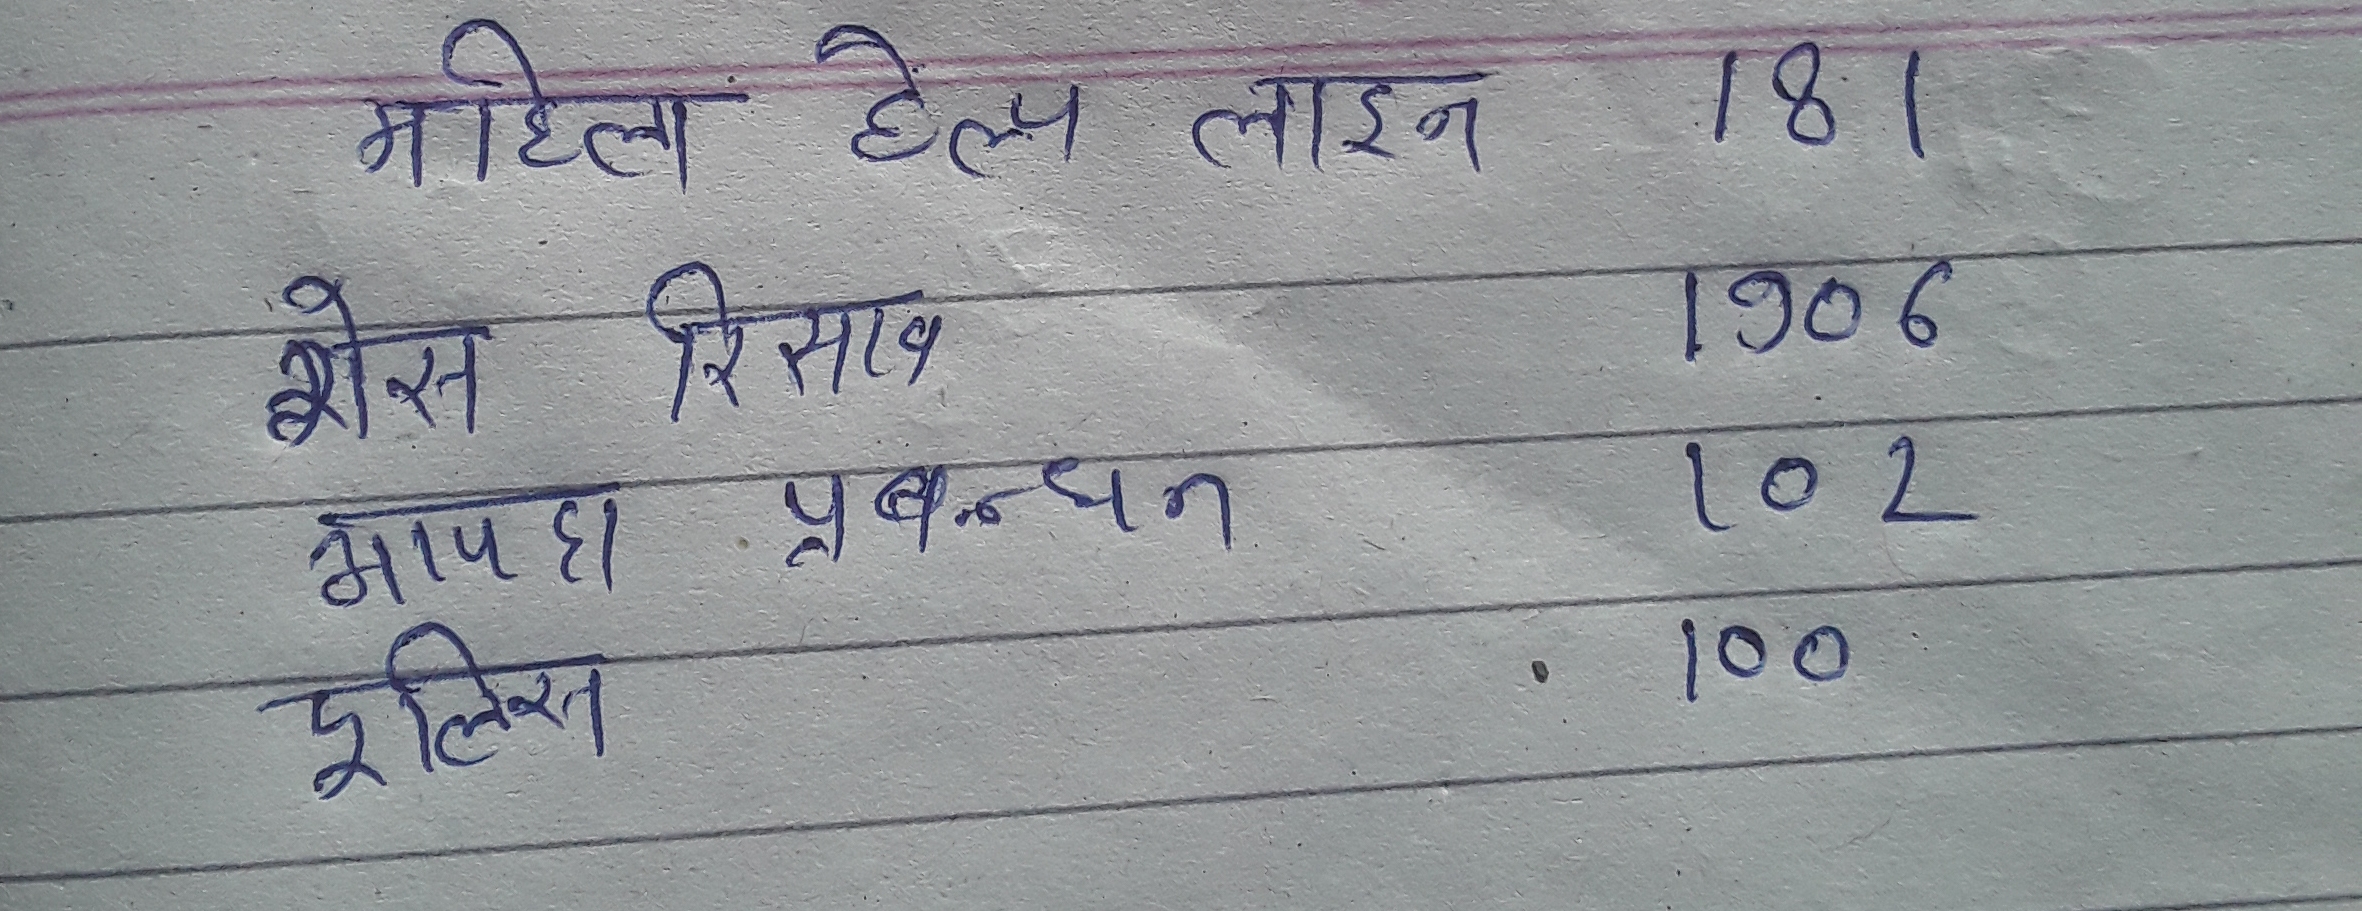 महिला हेल्प लाइन 181
गैस रिसाव 1906
आपदा प्रबन्धन 102
पुलिस 100